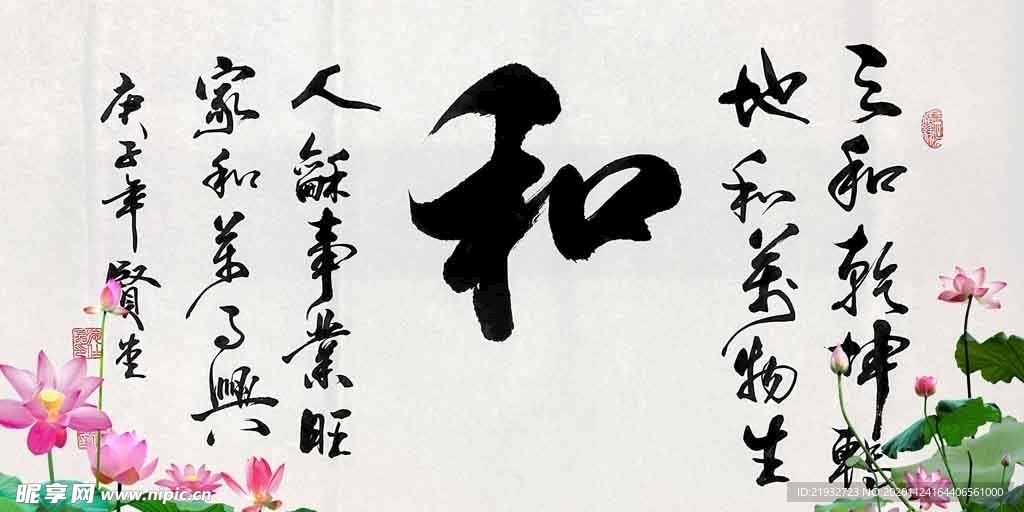 天和乾坤轉
地和萬物生
和
人龢事業旺
家和萬事興
庚子年賢堂
昵享网 www.nipic.cn
ID:21932723 NO:20201124164406561000